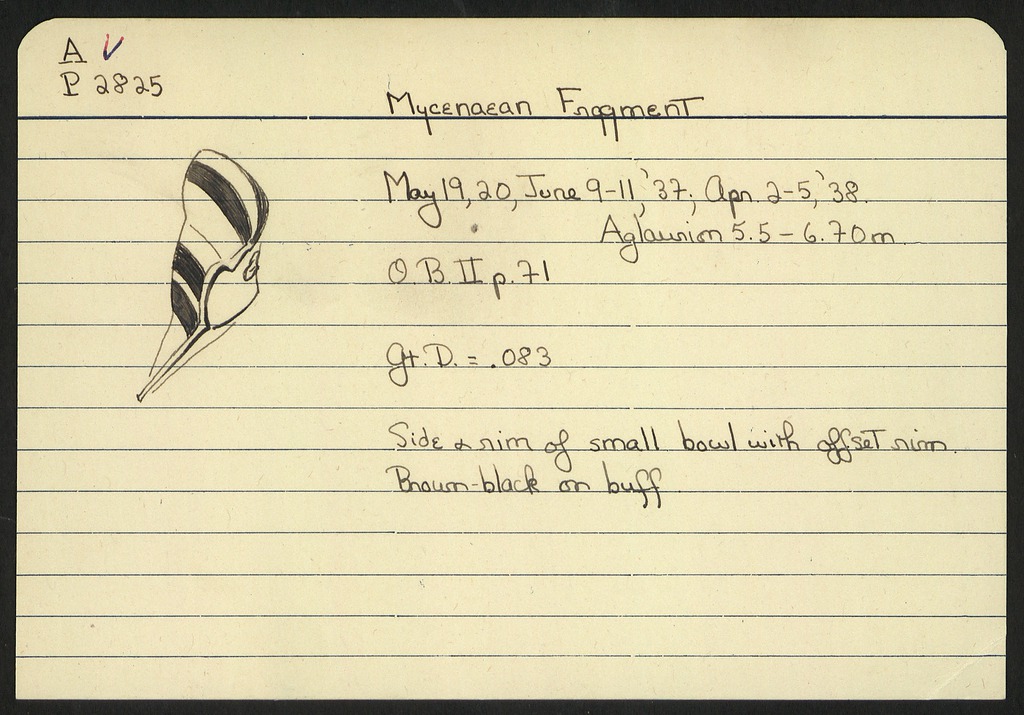 A ✓
P 2825
Mycenaean Fragment
May 19, 20, June 9-11, '37; Apr. 2-5, '38.
Aglaurion 5.5 - 6.70 m
O.B. II p. 71
Gt. D. = .083
Side & rim of small bowl with offset rim.
Brown-black on buff